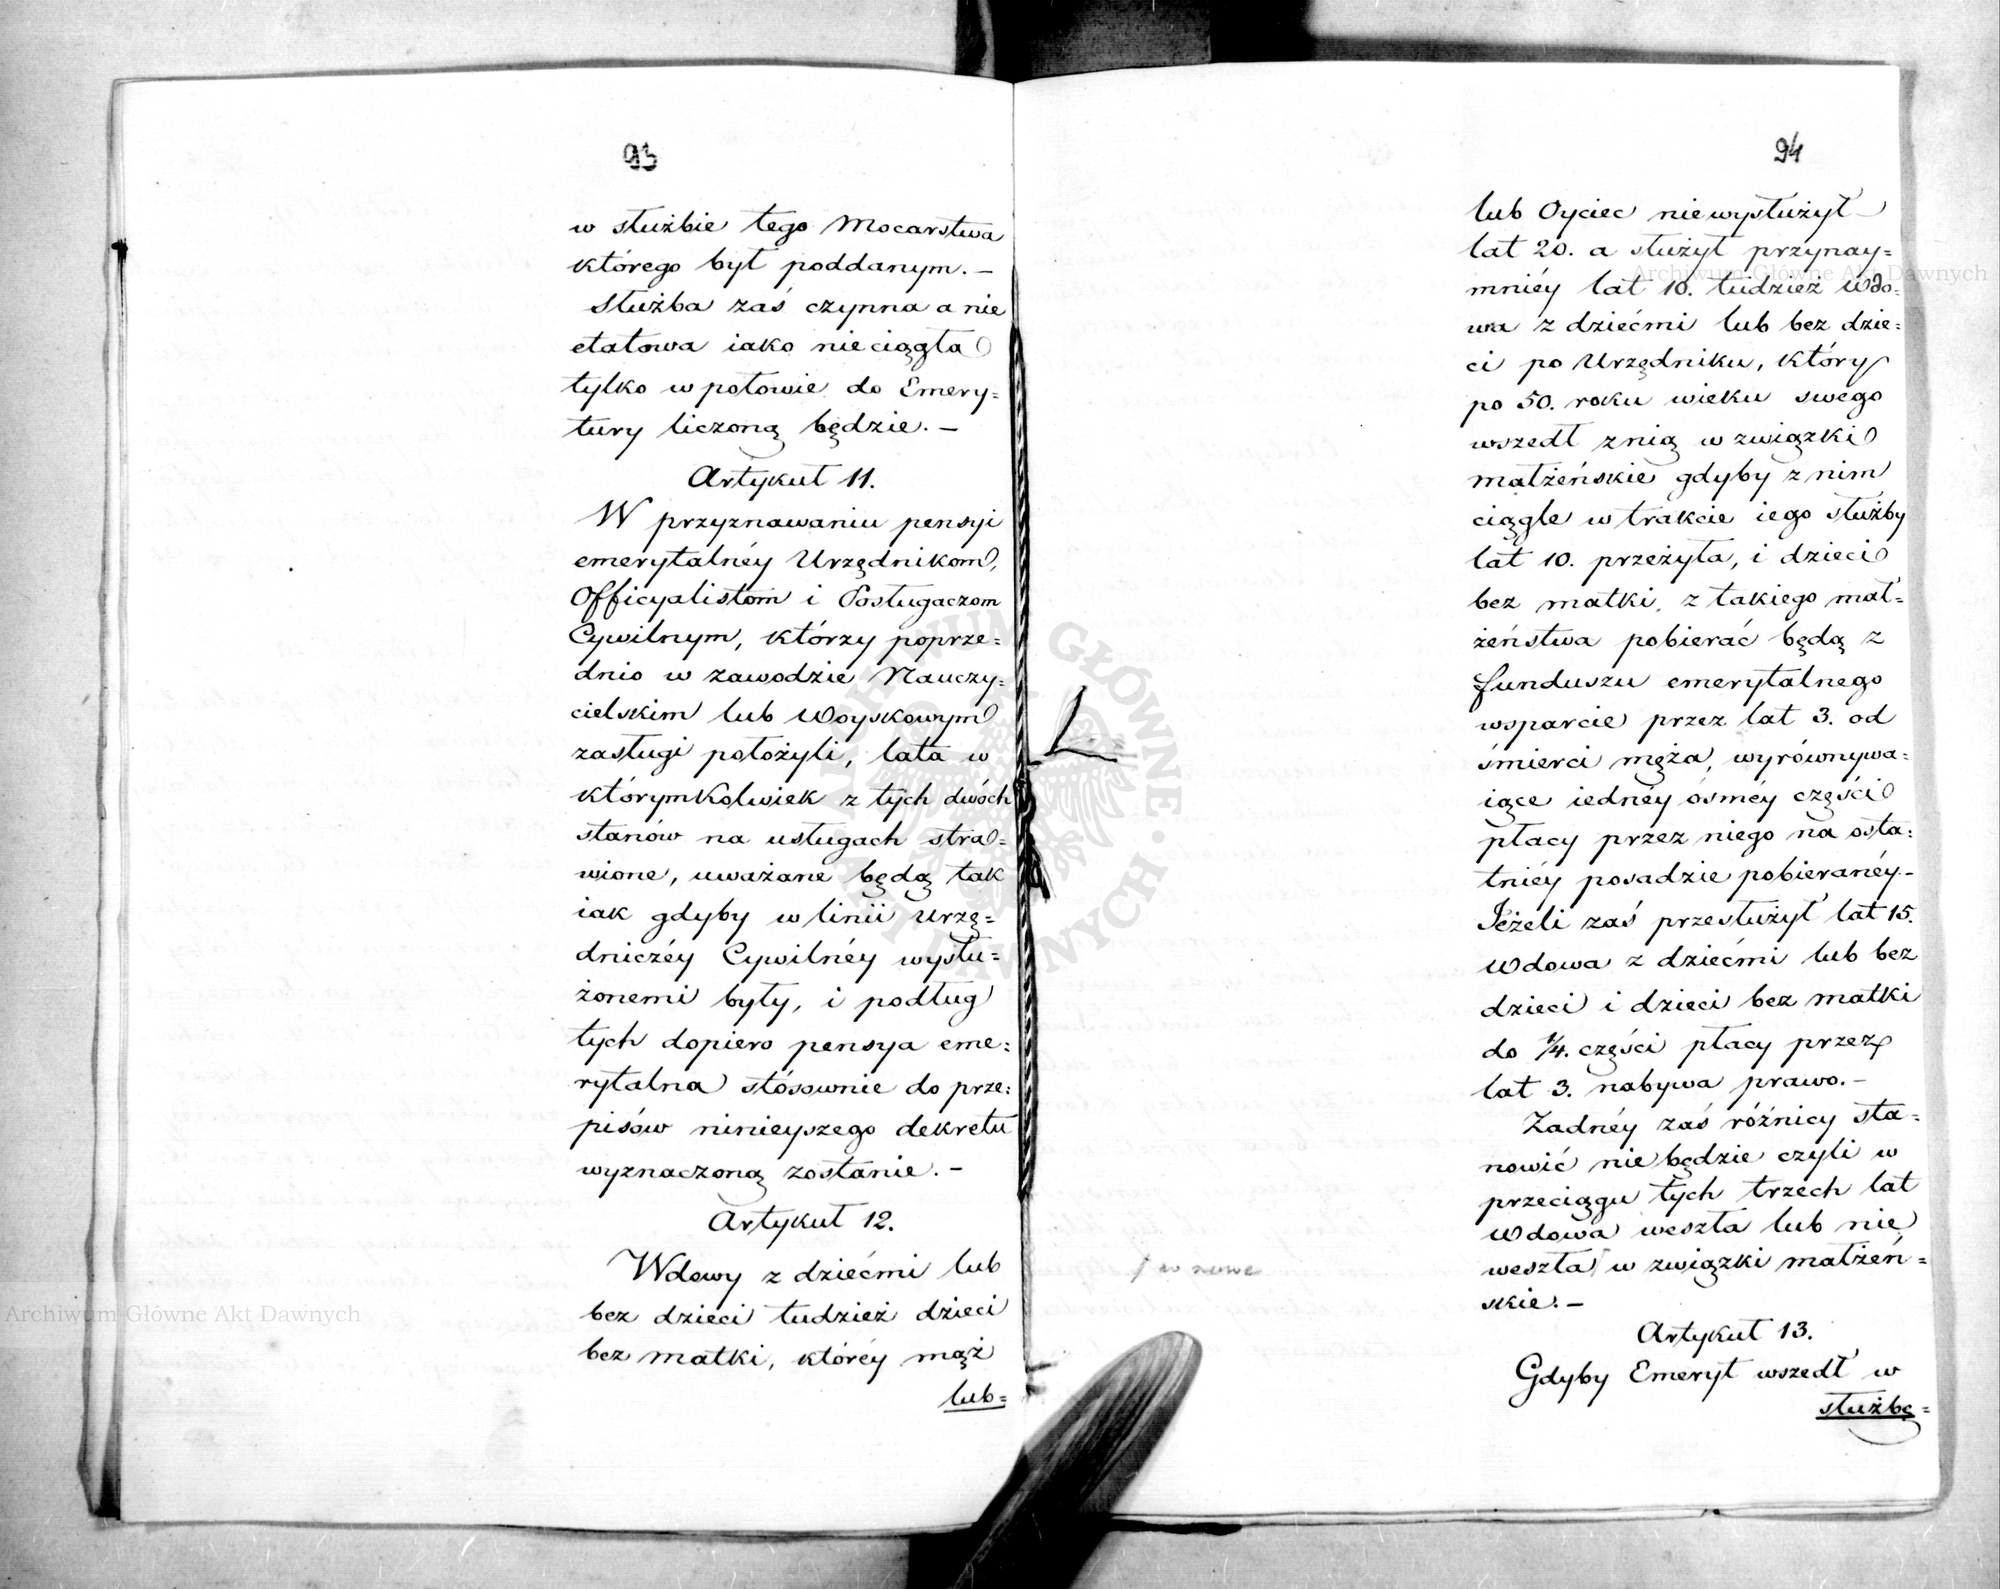 93
w służbie tego Mocarstwa
którego był poddanym. —
Służba zaś czynna a nie
etatowa iako nieciągła
tylko w połowie do Emery=
tury liczoną będzie. —
Artykuł 11.
W przyznawaniu pensyi
emerytalnéy Urzędnikom,
Officyalistom i Posługaczom
Cywilnym, którzy poprze=
dnio w zawodzie Nauczy=
cielskim lub Woyskowym
zasługi położyli, lata w
którymkolwiek z tych dwóch
stanów na usługach stra=
wione, uważane będą tak
iak gdyby w linii urzę=
dniczéy Cywilnéy wysłu=
żonemi były, i podług
tych dopiero pensya eme=
rytalna stósownie do prze=
pisów ninieyszego dekretu
wyznaczoną zostanie. —
Artykuł 12.
Wdowy z dziećmi lub
bez dzieci tudzież dzieci
bez matki, któréy mąż
lub=
94
lub Oyciec niewysłużył
lat 20. a służył przynay=
mniéy lat 10. tudzież Wdo=
wa z dziećmi lub bez dzie=
ci po Urzędniku, który
po 50. roku wieku swego
wszedł z nią w związki
małżeńskie gdyby z nim
ciągle w trakcie iego służby
lat 10. przeżyła, i dzieci
bez matki, z takiego mał=
żeństwa pobierać będą z
funduszu emerytalnego
wsparcie przez lat 3. od
śmierci męża, wyrównywa=
iące iednéy ósméy części
płacy przez niego na osta=
tniéy posadzie pobieranéy.—
Jeżeli zaś przesłużył lat 15.
Wdowa z dziećmi lub bez
dzieci i dzieci bez matki
do 1/4. części płacy przez
lat 3. nabywa prawo. —
Żadnéy zaś różnicy sta=
nowić nie będzie czyli w
przeciągu tych trzech lat
Wdowa weszła lub nie
weszła / w związki małżeń=
skie. —
/ w nowe
Artykuł 13.
Gdyby Emeryt wszedł w
służbę=
Archiwum Główne Akt Dawnych
Archiwum Główne Akt Dawnych
ARCHIWUM GŁÓWNE AKT DAWNYCH